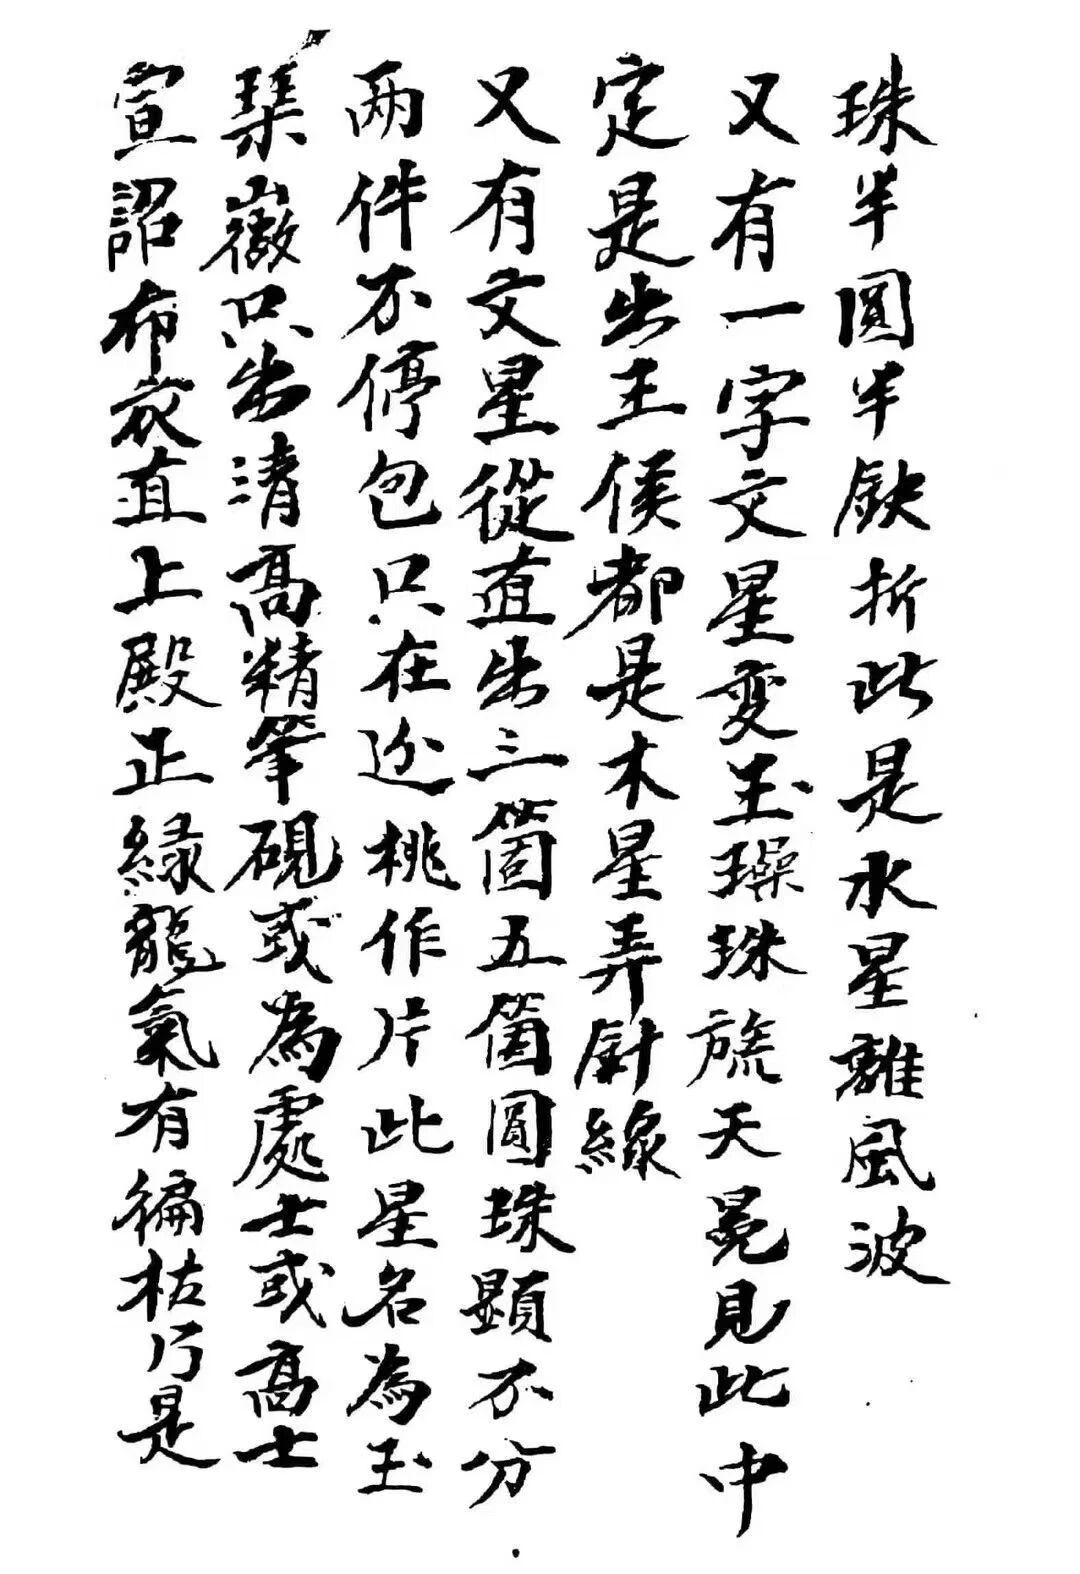 珠半圓半缺折此是水星離風波
又有一字文星変玉璪珠旒天冕見此中
定是出王侯都是木星弄針線
又有文星從直出三箇五箇圓珠顕不分
兩件不停包只在边桃作片此星名為玉
琹嶶只出清高精筆硯或為處士或高士
宣詔布衣直上殿正緑龍氣有徧枯乃是